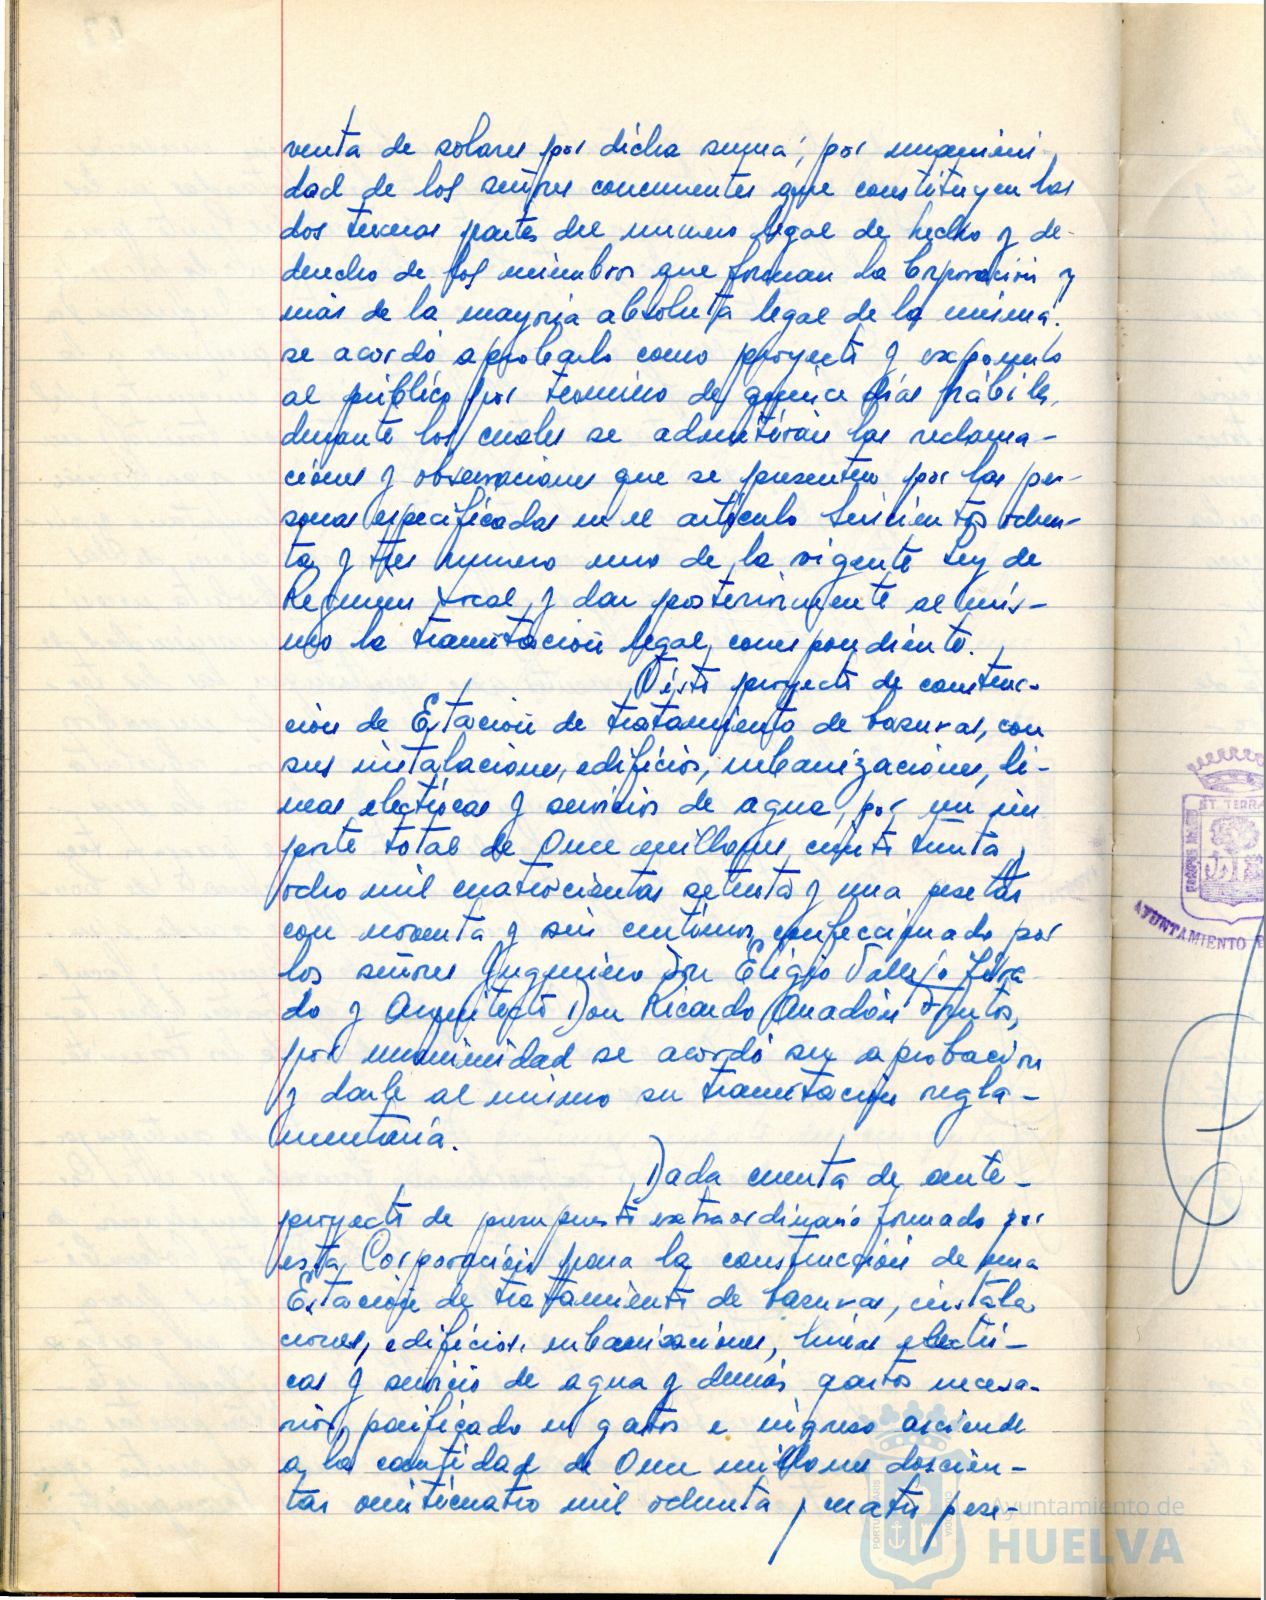 venta de solares por dicha suma, por unanimi-
dad de los señores concurrentes que constituyen las
dos terceras partes del numero legal de hecho y de
derecho de los miembros que forman la Corporación y
más de la mayoria absoluta legal de la misma,
se acordó aprobarlo como proyecto y exponerlo
al público por termino de quince días hábiles,
durante los cuales se admitirán las reclama-
ciones y observaciones que se presenten por las per-
sonas especificadas en el artículo seiscientos ochen-
ta y tres numero uno de la vigente Ley de
Regimen Local, y dar posteriormente al mis-
mo la tramitación legal correspondiente.
Visto proyecto de construc-
ción de Estación de tratamiento de basuras, con
sus instalaciones, edificios, urbanizaciones, lí-
neas electricas y servicios de agua, por un im
porte total de Once millones ciento treinta y
ocho mil cuatrocientas setenta y una pesetas
con noventa y seis centimos, confeccionado por
los señores Ingeniero Don Eligio Vallejo
do y Arquitecto Don Ricardo Anadón Frutos,
por unanimidad se acordó su aprobación
y darle al mismo su tramitación regla-
mentaria.
Dada cuenta de ante-
proyecto de presupuesto extraordinario formado por
esta Corporación para la construcción de una
Estación de tratamiento de basuras, instala
ciones, edificios, urbanizaciones, lineas electri-
cas y servicio de agua y demás gastos necesa-
rios, en gastos e ingreso asciende
a la cantidad de Once millones doscien-
tas veinticuatro mil ochenta y cuatro pese-
ET TERRA
AYUNTAMIENTO
PORTUS MARIS
Ayuntamiento de
HUELVA